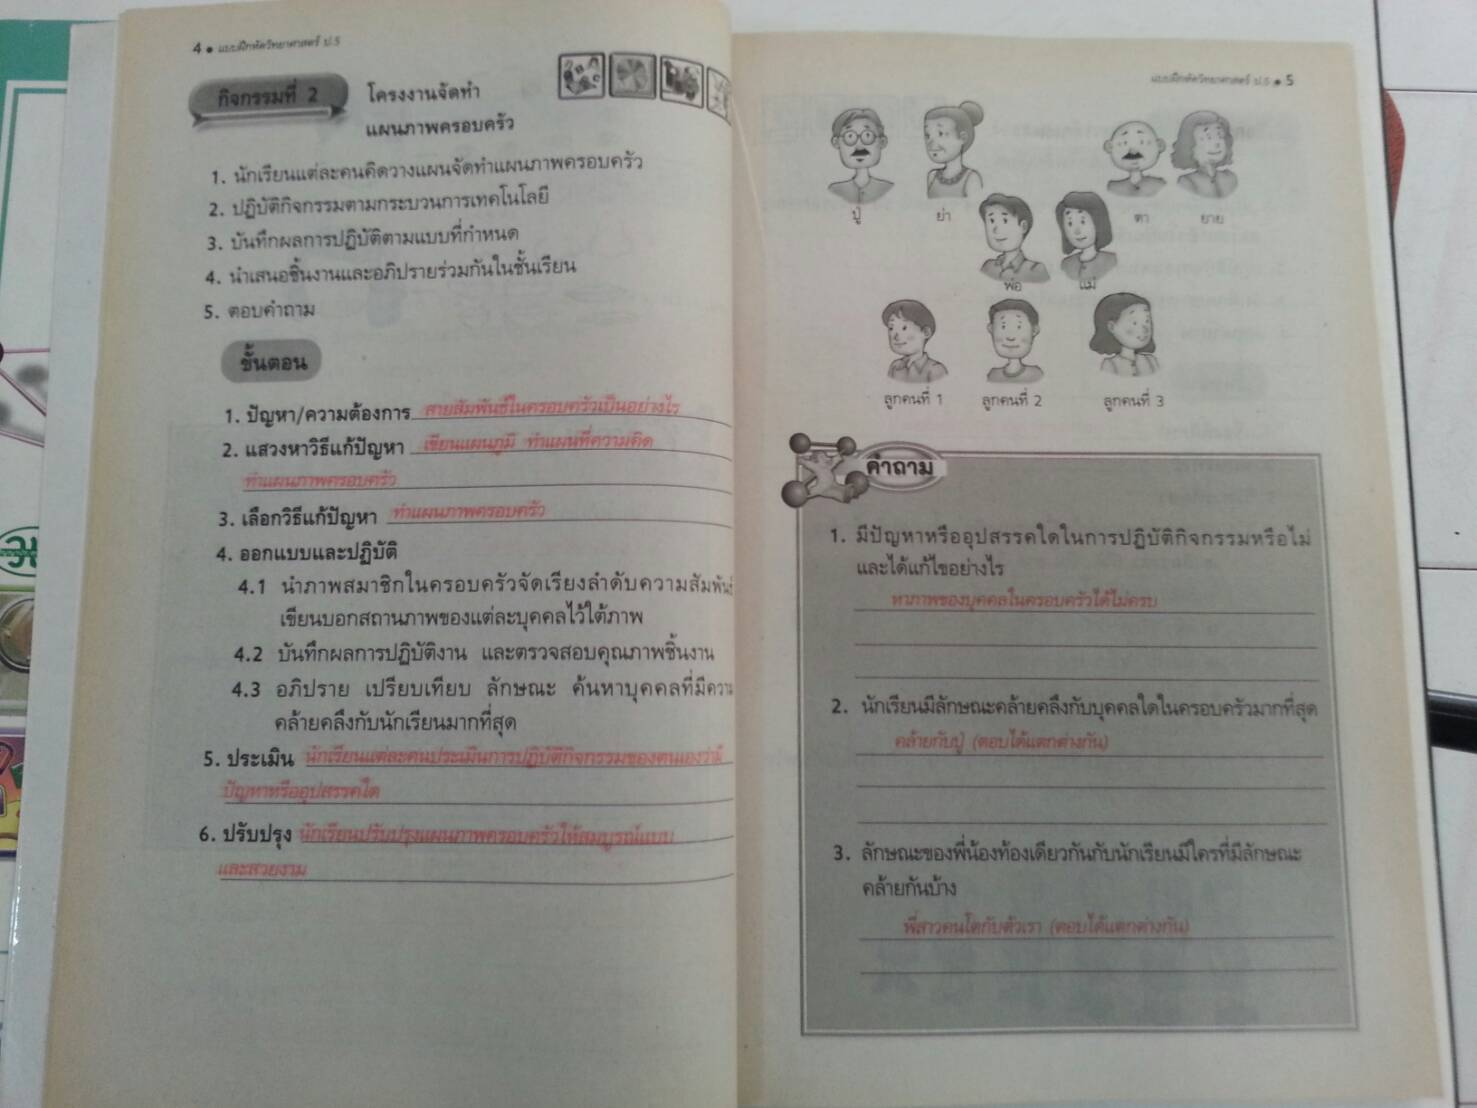 4 • แบบฝึกหัดวิทยาศาสตร์ ป.5
กิจกรรมที่ 2
โครงงานจัดทำ
แผนภาพครอบครัว
1. นักเรียนแต่ละคนคิดวางแผนจัดทำแผนภาพครอบครัว
2. ปฏิบัติกิจกรรมตามกระบวนการเทคโนโลยี
3. บันทึกผลการปฏิบัติตามแบบที่กำหนด
4. นำเสนอชิ้นงานและอภิปรายร่วมกันในชั้นเรียน
5. ตอบคำถาม
ขั้นตอน
1. ปัญหา/ความต้องการ สายสัมพันธ์ในครอบครัวเป็นอย่างไร
2. แสวงหาวิธีแก้ปัญหา เขียนแผนภูมิ ทำแผนที่ความคิด
ทำแผนภาพครอบครัว
3. เลือกวิธีแก้ปัญหา ทำแผนภาพครอบครัว
4. ออกแบบและปฏิบัติ
4.1 นำภาพสมาชิกในครอบครัวจัดเรียงลำดับความสัมพันธ์
เขียนบอกสถานภาพของแต่ละบุคคลไว้ใต้ภาพ
4.2 บันทึกผลการปฏิบัติงาน และตรวจสอบคุณภาพชิ้นงาน
4.3 อภิปราย เปรียบเทียบ ลักษณะ ค้นหาบุคคลที่มีความ
คล้ายคลึงกับนักเรียนมากที่สุด
5. ประเมิน นักเรียนแต่ละคนประเมินการปฏิบัติกิจกรรมของตนเองว่ามี
ปัญหาหรืออุปสรรคใด
6. ปรับปรุง นักเรียนปรับปรุงแผนภาพครอบครัวให้สมบูรณ์แบบ
และสวยงาม
แบบฝึกหัดวิทยาศาสตร์ ป.5 • 5
ปู่ ย่า ตา ยาย
พ่อ แม่
ลูกคนที่ 1 ลูกคนที่ 2 ลูกคนที่ 3
คำถาม
1. มีปัญหาหรืออุปสรรคใดในการปฏิบัติกิจกรรมหรือไม่
และได้แก้ไขอย่างไร
หาภาพของบุคคลในครอบครัวได้ไม่ครบ
2. นักเรียนมีลักษณะคล้ายคลึงกับบุคคลใดในครอบครัวมากที่สุด
คล้ายกับปู่ (ตอบได้แตกต่างกัน)
3. ลักษณะของพี่น้องท้องเดียวกันกับนักเรียนมีใครที่มีลักษณะ
คล้ายกันบ้าง
พี่สาวคนโตกับตัวเรา (ตอบได้แตกต่างกัน)